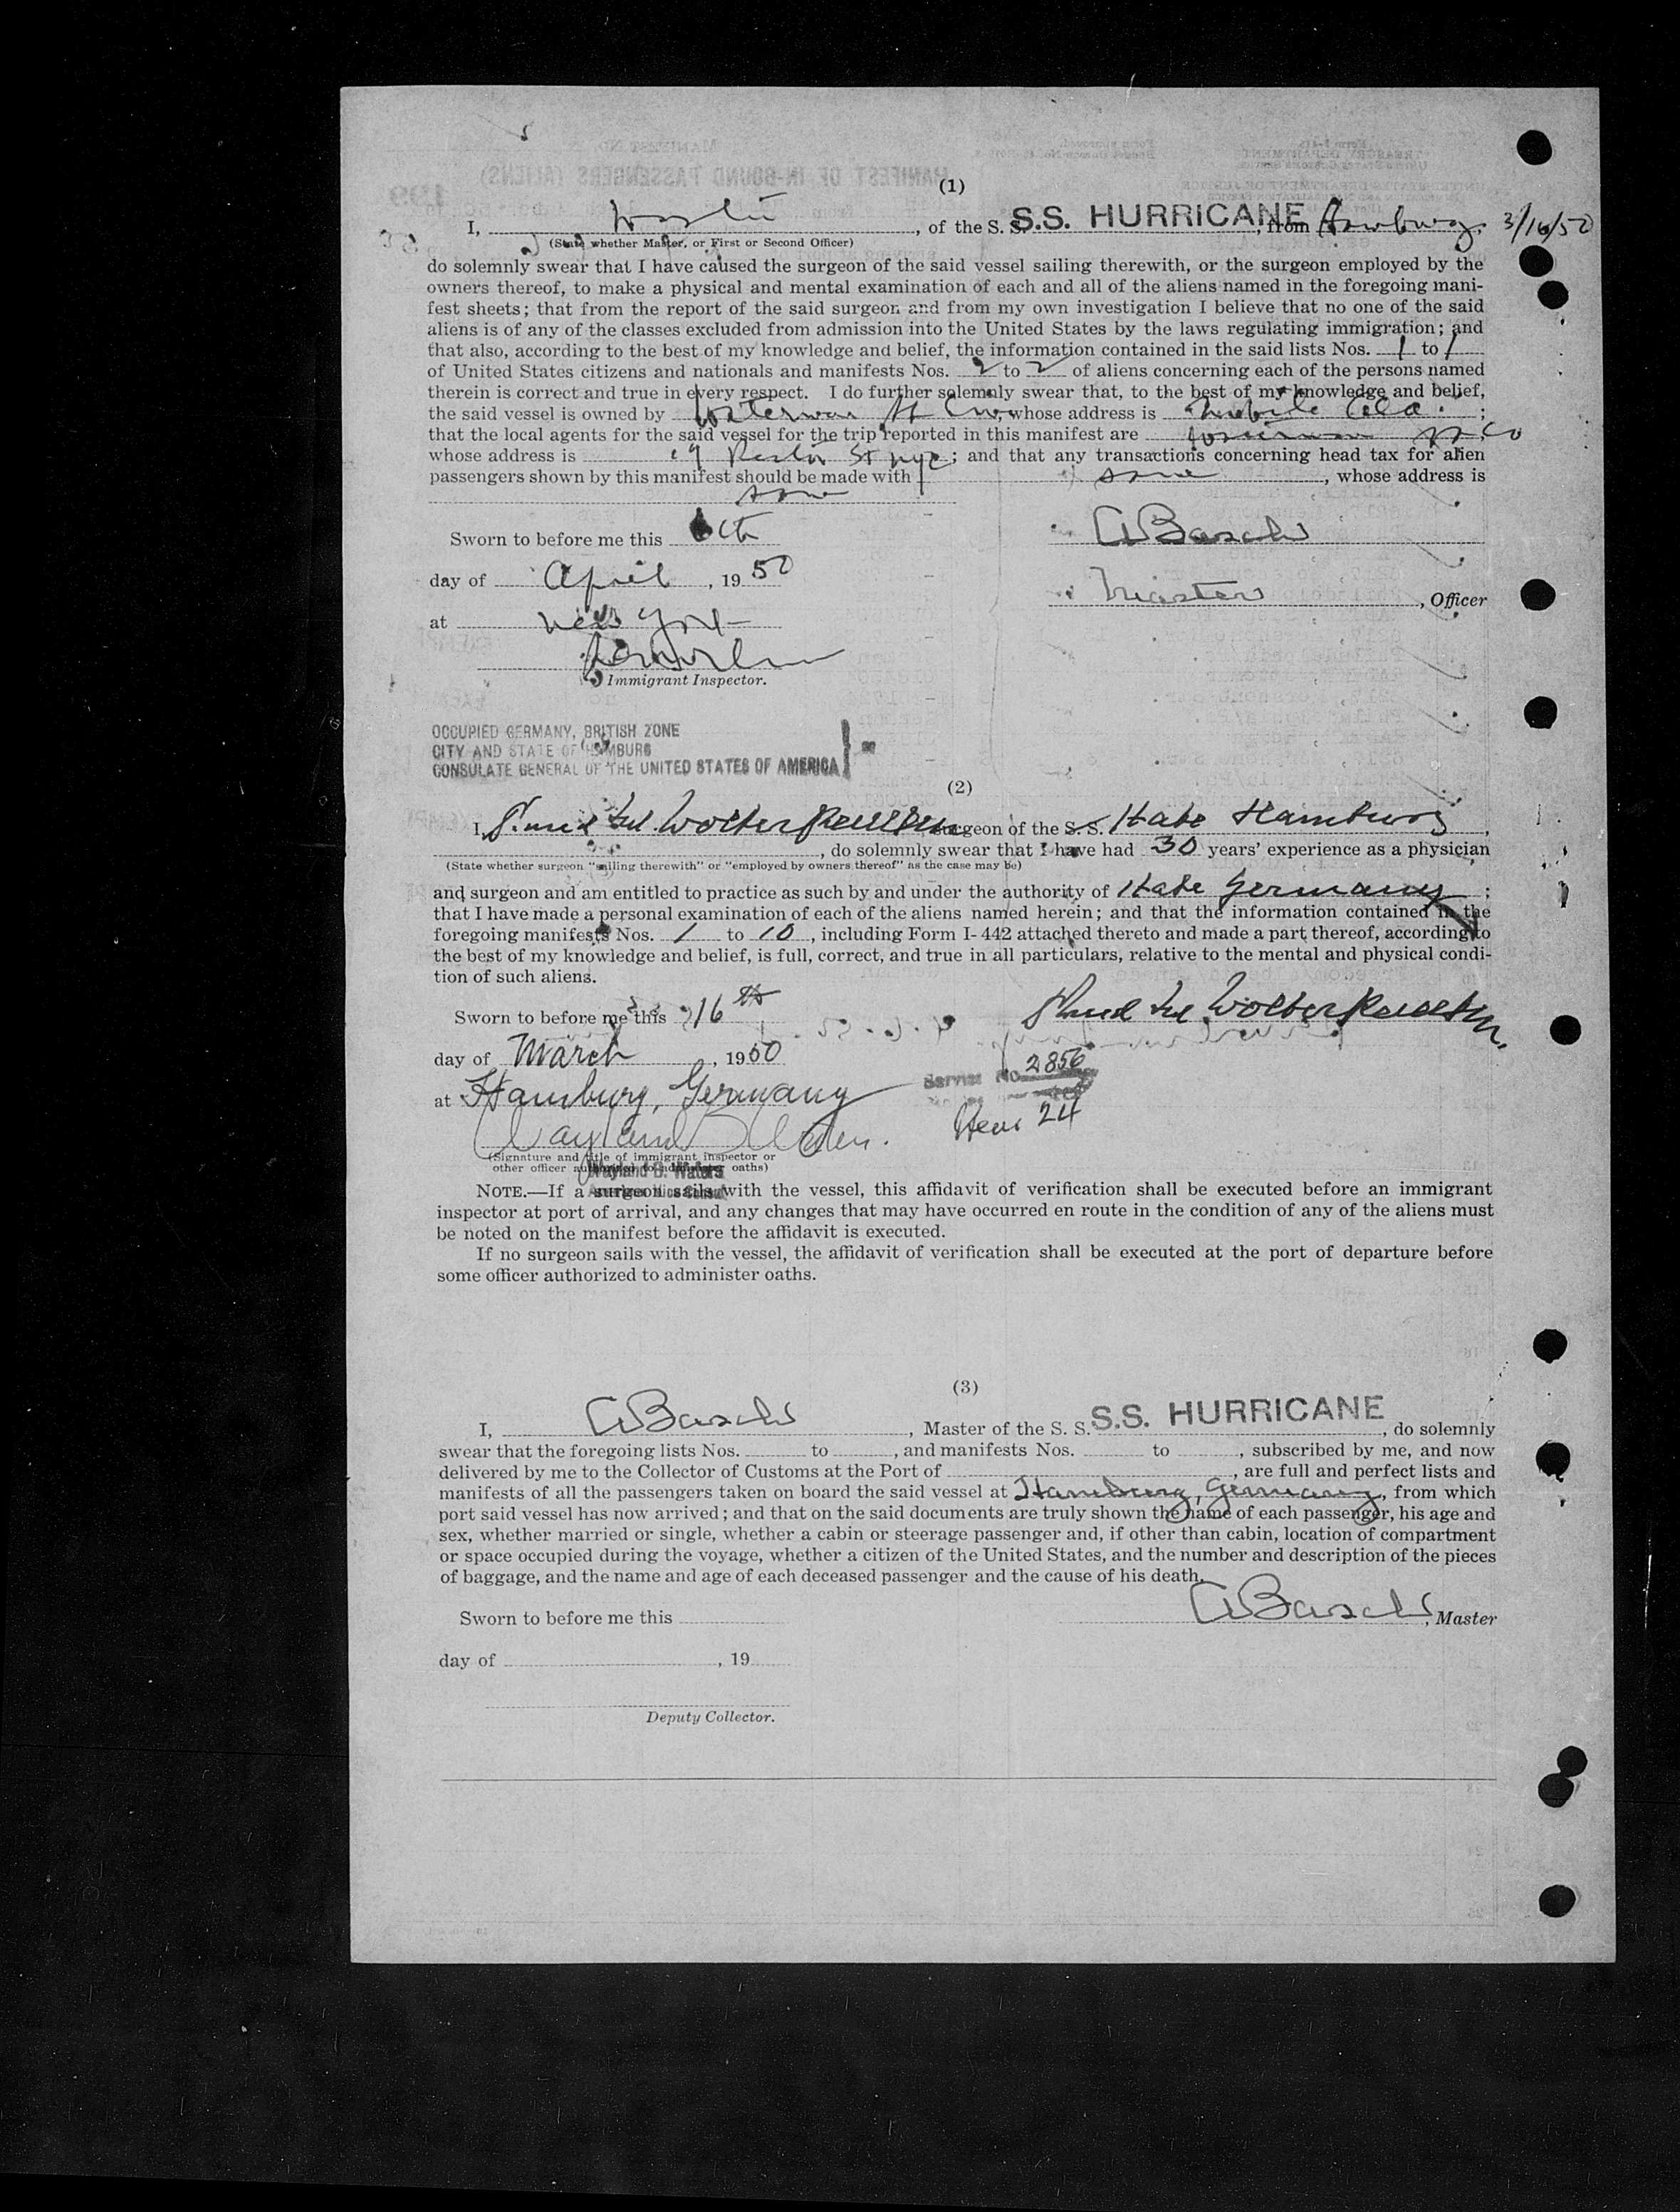 (1)
I, Master, of the S. S. S.S. HURRICANE, from Hamburg, 3/16/50
(State whether Master, or First or Second Officer)
do solemnly swear that I have caused the surgeon of the said vessel sailing therewith, or the surgeon employed by the
owners thereof, to make a physical and mental examination of each and all of the aliens named in the foregoing mani-
fest sheets; that from the report of the said surgeon and from my own investigation I believe that no one of the said
aliens is of any of the classes excluded from admission into the United States by the laws regulating immigration; and
that also, according to the best of my knowledge and belief, the information contained in the said lists Nos. 1 to 1
of United States citizens and nationals and manifests Nos. 2 to 2 of aliens concerning each of the persons named
therein is correct and true in every respect. I do further solemnly swear that, to the best of my knowledge and belief,
the said vessel is owned by Waterman, whose address is Mobile Ala. ;
that the local agents for the said vessel for the trip reported in this manifest are Waterman SS Co
whose address is 19 Rector St NYC; and that any transactions concerning head tax for alien
passengers shown by this manifest should be made with same, whose address is
same
Sworn to before me this
day of April, 1950
at New York
Master, Officer
Immigrant Inspector.
OCCUPIED GERMANY, BRITISH ZONE
CITY AND STATE OF HAMBURG
CONSULATE GENERAL OF THE UNITED STATES OF AMERICA
(2)
I, surgeon of the S. S. State Hamburg,
, do solemnly swear that I have had 30 years' experience as a physician
(State whether surgeon "sailing therewith" or "employed by owners thereof" as the case may be)
and surgeon and am entitled to practice as such by and under the authority of State Germany ;
that I have made a personal examination of each of the aliens named herein; and that the information contained in the
foregoing manifests Nos. 1 to 10, including Form I-442 attached thereto and made a part thereof, according to
the best of my knowledge and belief, is full, correct, and true in all particulars, relative to the mental and physical condi-
tion of such aliens.
Sworn to before me this 16th
day of March, 1950
Service No. 2856
at Hamburg, Germany
Item 24
(Signature and title of immigrant inspector or
other officer authorized to administer oaths)
Wayland B. Waters
NOTE.—If a surgeon sails with the vessel, this affidavit of verification shall be executed before an immigrant
inspector at port of arrival, and any changes that may have occurred en route in the condition of any of the aliens must
be noted on the manifest before the affidavit is executed.
If no surgeon sails with the vessel, the affidavit of verification shall be executed at the port of departure before
some officer authorized to administer oaths.
(3)
I, , Master of the S. S. S.S. HURRICANE, do solemnly
swear that the foregoing lists Nos. to , and manifests Nos. to , subscribed by me, and now
delivered by me to the Collector of Customs at the Port of , are full and perfect lists and
manifests of all the passengers taken on board the said vessel at Hamburg, Germany, from which
port said vessel has now arrived; and that on the said documents are truly shown the name of each passenger, his age and
sex, whether married or single, whether a cabin or steerage passenger and, if other than cabin, location of compartment
or space occupied during the voyage, whether a citizen of the United States, and the number and description of the pieces
of baggage, and the name and age of each deceased passenger and the cause of his death.
Sworn to before me this , Master
day of , 19
Deputy Collector.